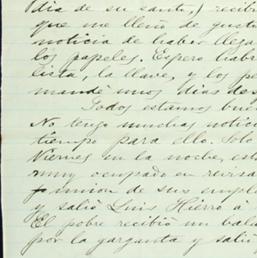 (día de su santo,) recibí
que me llenó de gusto
noticia de haber llega
los papeles. Espero habr
lista, la llave, y los pe
mandé unos días des
Todos estamos bue
No tengo muchas notici
tiempo para ello. Solo
Viernes en la noche, est
muy ocupado en revisa
de sus emple
y salió Luis Hierro a
El pobre recibió un bala
por la garganta y salió